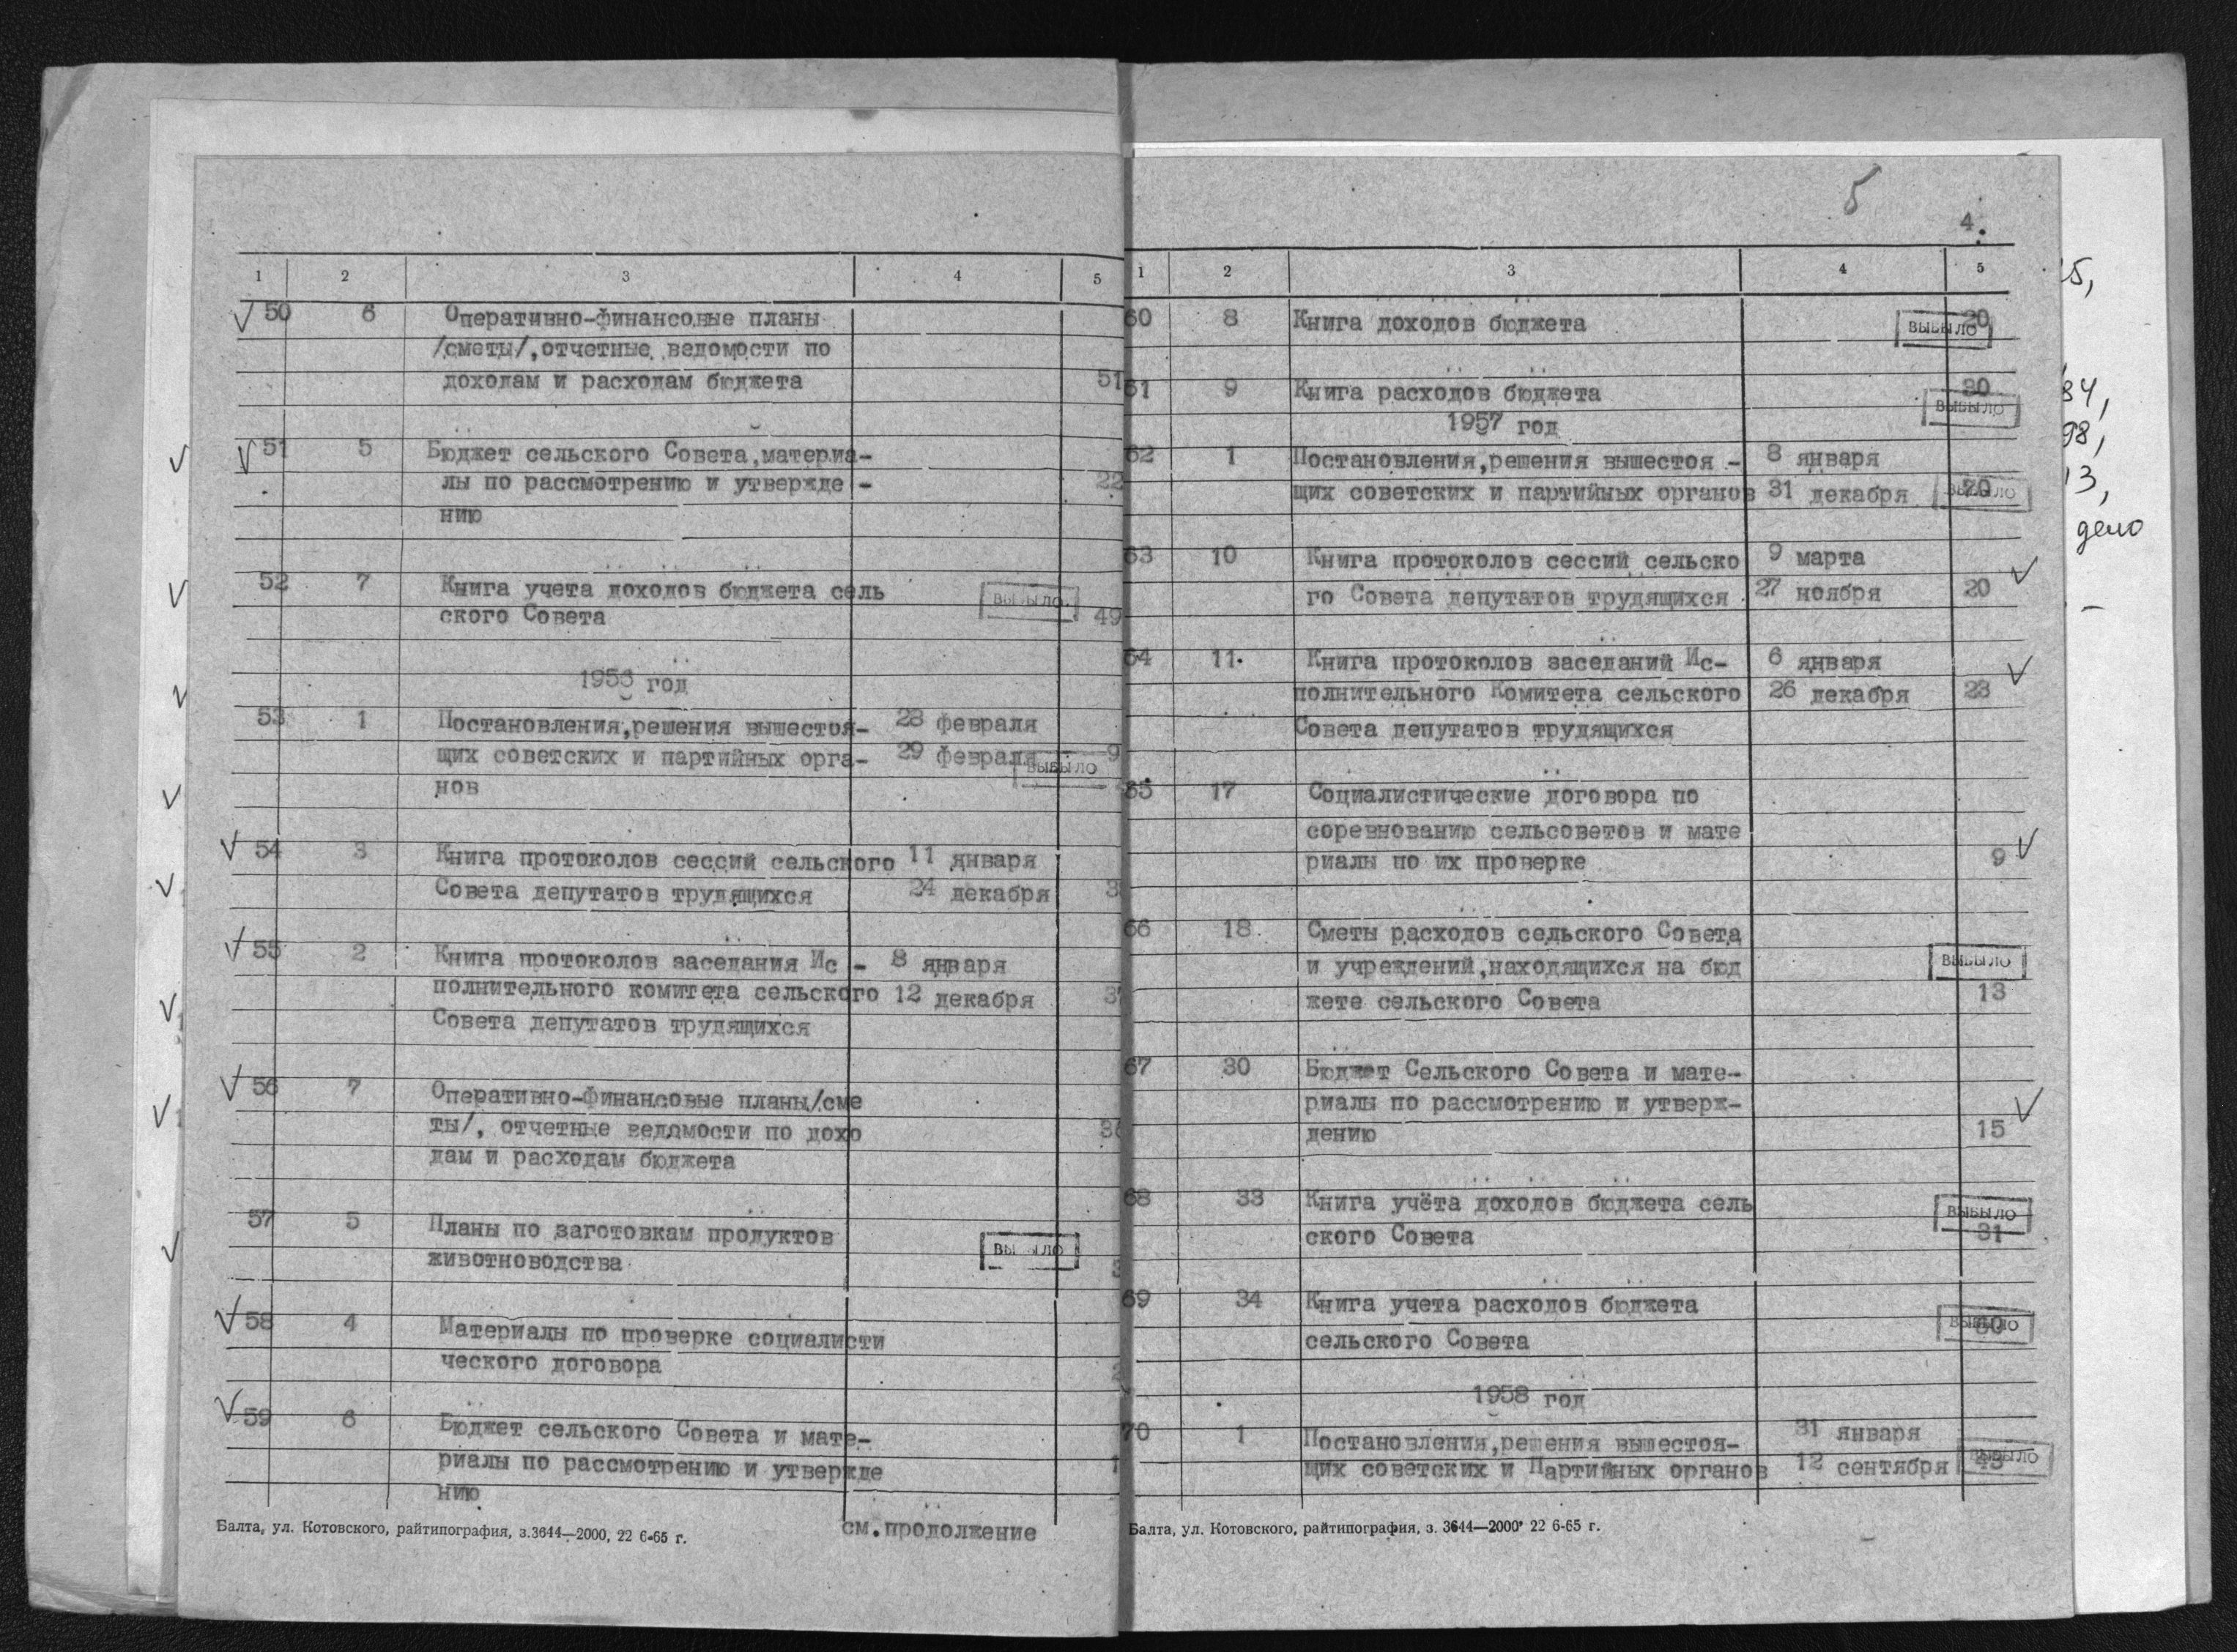 1 2 3 4 5
50 6 Оперативно-финансовые планы
/сметы/,отчетные ведомости по
доходам и расходам бюджета 51
51 5 Бюджет сельского Совета,материа-
лы по рассмотрению и утвержде - 22
нию
52 7 Книга учета доходов бюджета сель
выбыло
ского Совета 49
1956 год
53 1 Постановления,решения вышестоя- 28 февраля
щих советских и партийных орга- 29 февраля 9
выбыло
нов
54 3 Книга протоколов сессий сельского 11 января
Совета депутатов трудящихся 24 декабря
55 2 Книга протоколов заседания Ис - 8 января
полнительного комитета сельского 12 декабря
Совета депутатов трудящихся
56 7 Оперативно-финансовые планы/сме
ты/, отчетные ведомости по дохо
дам и расходам бюджета
57 5 Планы по заготовкам продуктов
выбыло
животноводства
58 4 Материалы по проверке социалисти
ческого договора
59 6 Бюджет сельского Совета и мате-
риалы по рассмотрению и утвержде
нию
Балта, ул. Котовского, райтипография, з.3644—2000, 22 6-65 г.
см.продолжение
5
4.
1 2 3 4 5
60 8 Книга доходов бюджета 20
выбыло
61 9 Книга расходов бюджета 30
выбыло
1957 год
62 1 Постановления,решения вышестоя - 8 января
щих советских и партийных органов 31 декабря 20
выбыло
63 10 Книга протоколов сессий сельско 9 марта
го Совета депутатов трудящихся 27 ноября 20
64 11. Книга протоколов заседаний Ис- 6 января
полнительного Комитета сельского 26 декабря 23
Совета депутатов трудящихся
65 17 Социалистические договора по
соревнованию сельсоветов и мате
риалы по их проверке 9
66 18 Сметы расходов сельского Совета
и учреждений,находящихся на бюд
выбыло
жете сельского Совета 13
67 30 Бюджет Сельского Совета и мате-
риалы по рассмотрению и утверж-
дению 15
68 33 Книга учёта доходов бюджета сель
выбыло
ского Совета 31
69 34 Книга учета расходов бюджета
выбыло
сельского Совета
1958 год
70 1 Постановления,решения вышестоя- 31 января
щих советских и Партийных органов 12 сентября
выбыло
Балта, ул. Котовского, райтипография, з. 3644—2000 22 6-65 г.
дело